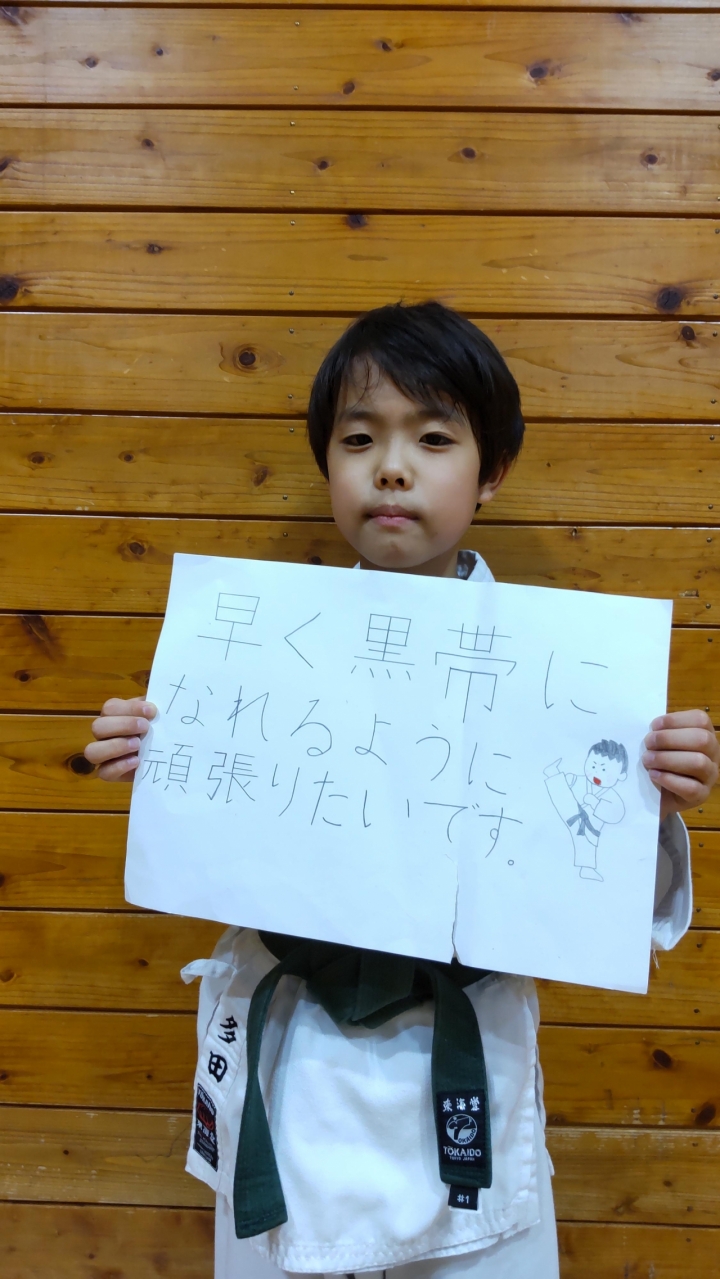 早く黒帯に
なれるように
頑張りたいです。
多田
東海堂
TOKAIDO
TOKYO JAPAN
#1